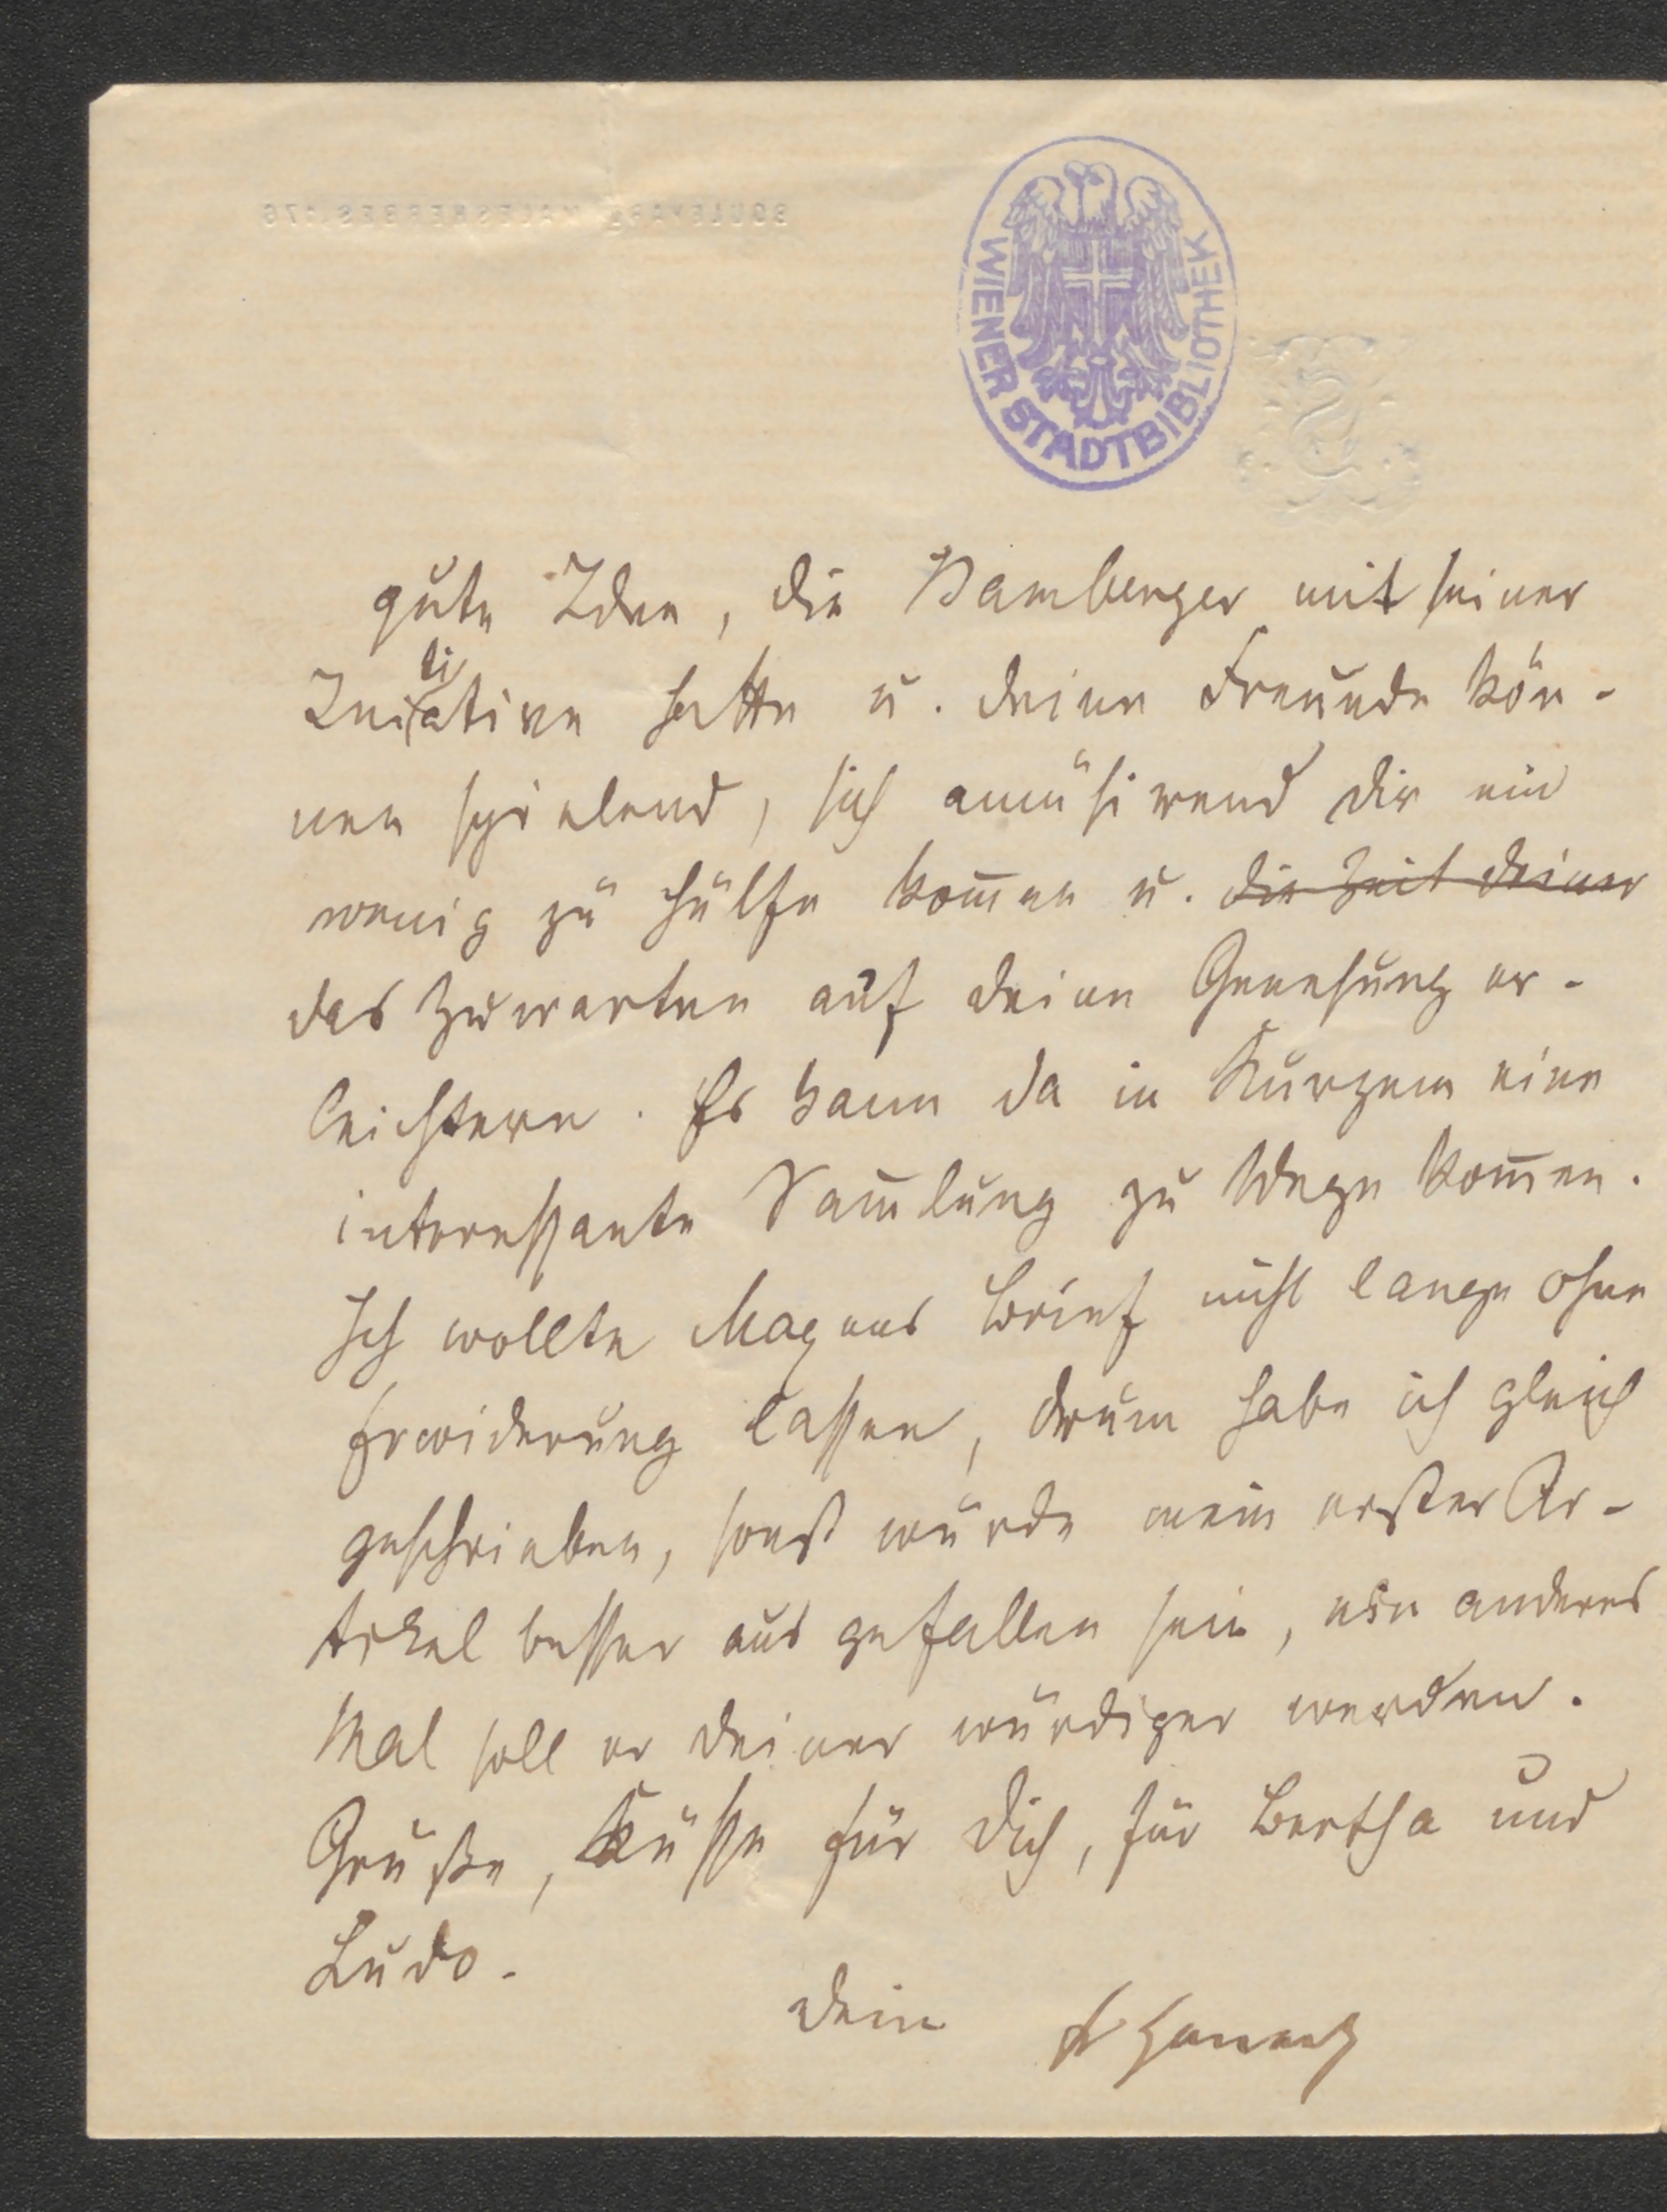 BOULEVARD MALESHERBES. 176
WIENER STADTBIBLIOTHEK
gute Idee, die Bamberger mit seiner
Initiative hatte u. deine Freunde kön-
nen spielend, sich amüsirend dir ein
wenig zu Hülfe kom̅en u. die Zeit deiner
das Zuwarten auf deine Genesung er-
leichtern. Es kann da in Kurzem eine
interessante Sam̅lung zu Wege kom̅en.
Ich wollte Magnus Brief nicht lange ohne
Erwiderung lassen, drum habe ich gleich
geschrieben, sonst würde mein erster Ar-
tikel besser aus gefallen sein, ein anderes
Mal soll er deiner würdiger werden.
Grüße, Küsse für dich, für Bertha und
Ludo.
dein